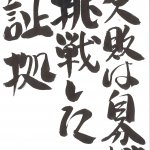 失敗は自分が
挑戦した
証拠